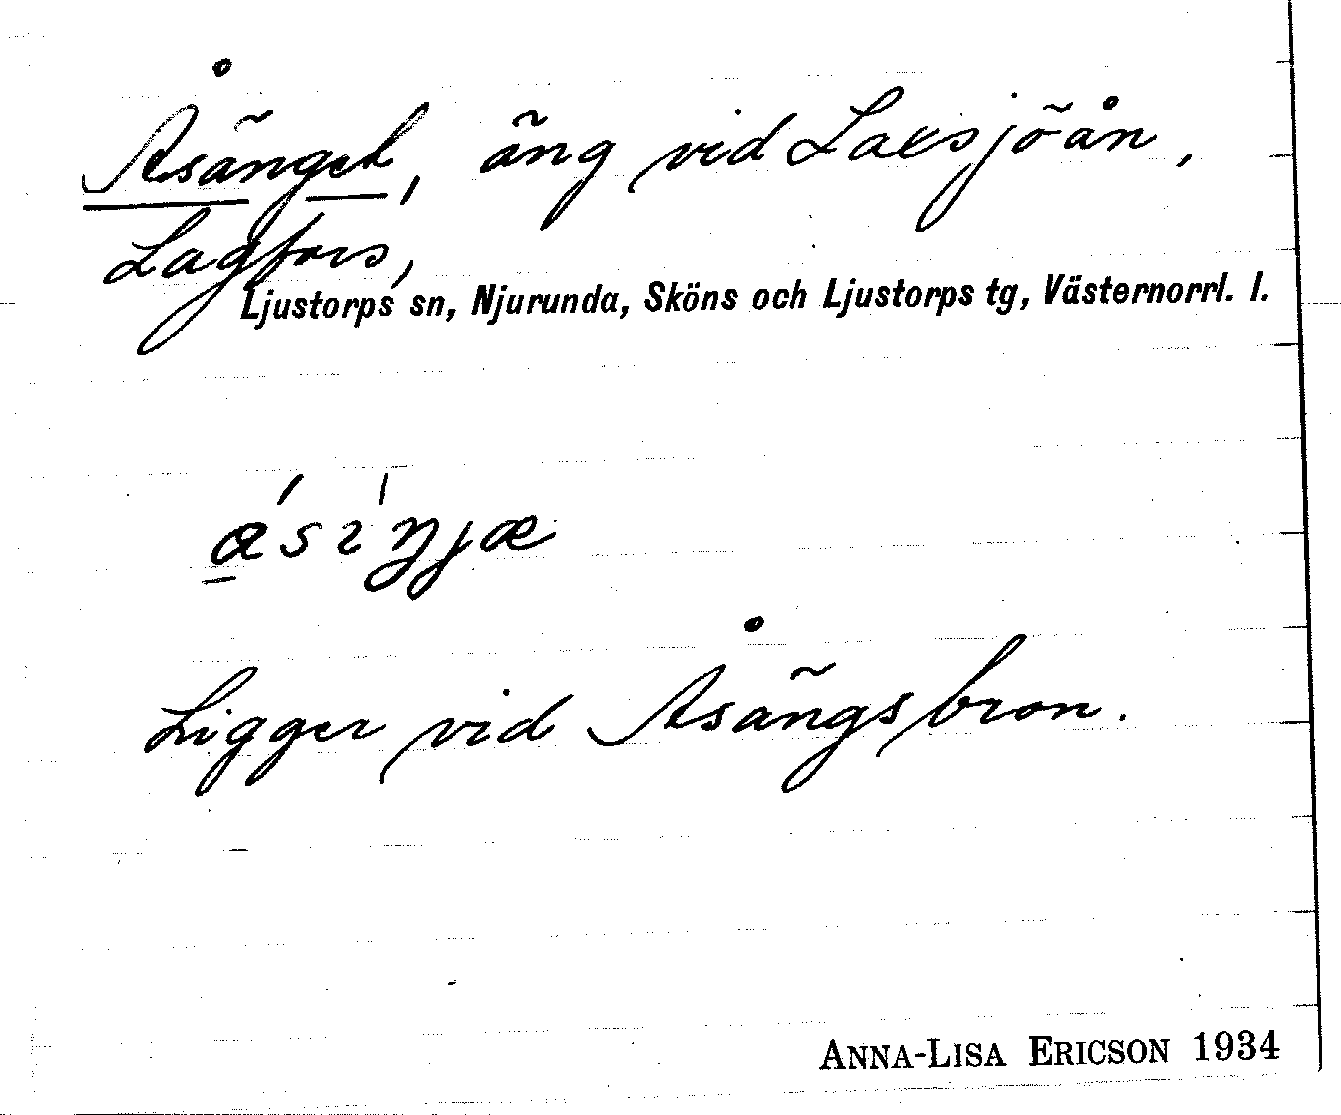 Åsänget, äng vid Laxsjöån,
Lagfors,
Ljustorps sn, Njurunda, Sköns och Ljustorps tg, Västernorrl. l.
Ligger vid Åsängsbron.
ANNA-LISA ERICSON 1934